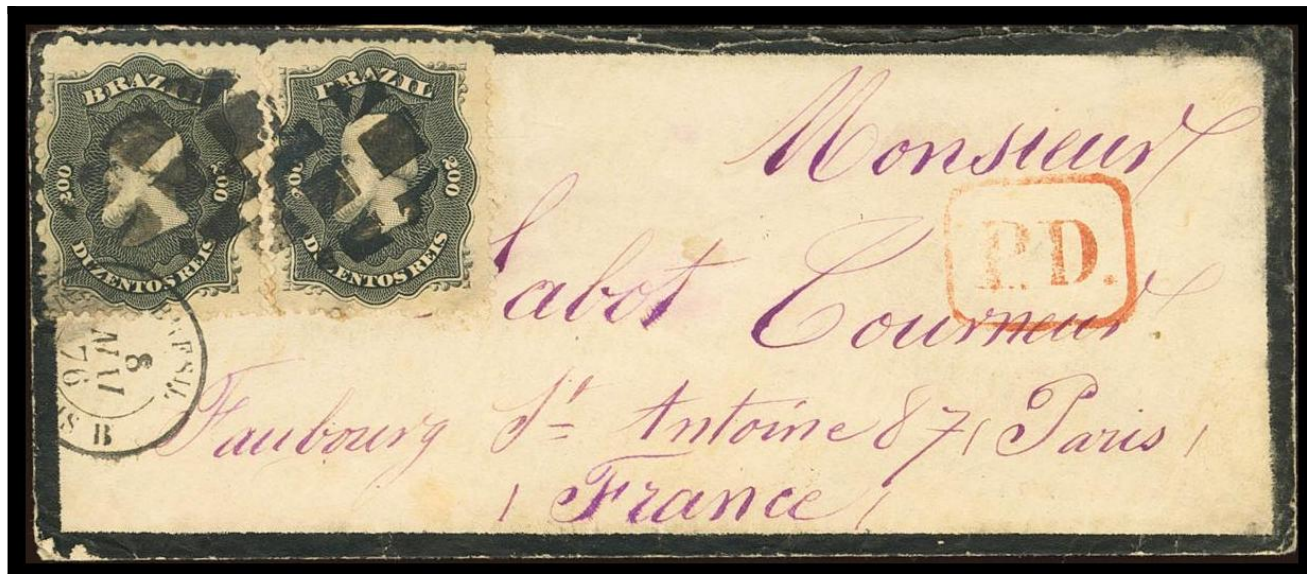 BRAZIL
200 200
DUZENTOS REIS
BRAZIL
200 200
DUZENTOS REIS
Monsieur
P.D.
Cabot Courneur
8
76
Faubourg St Antoine 87 (Paris)
(France)